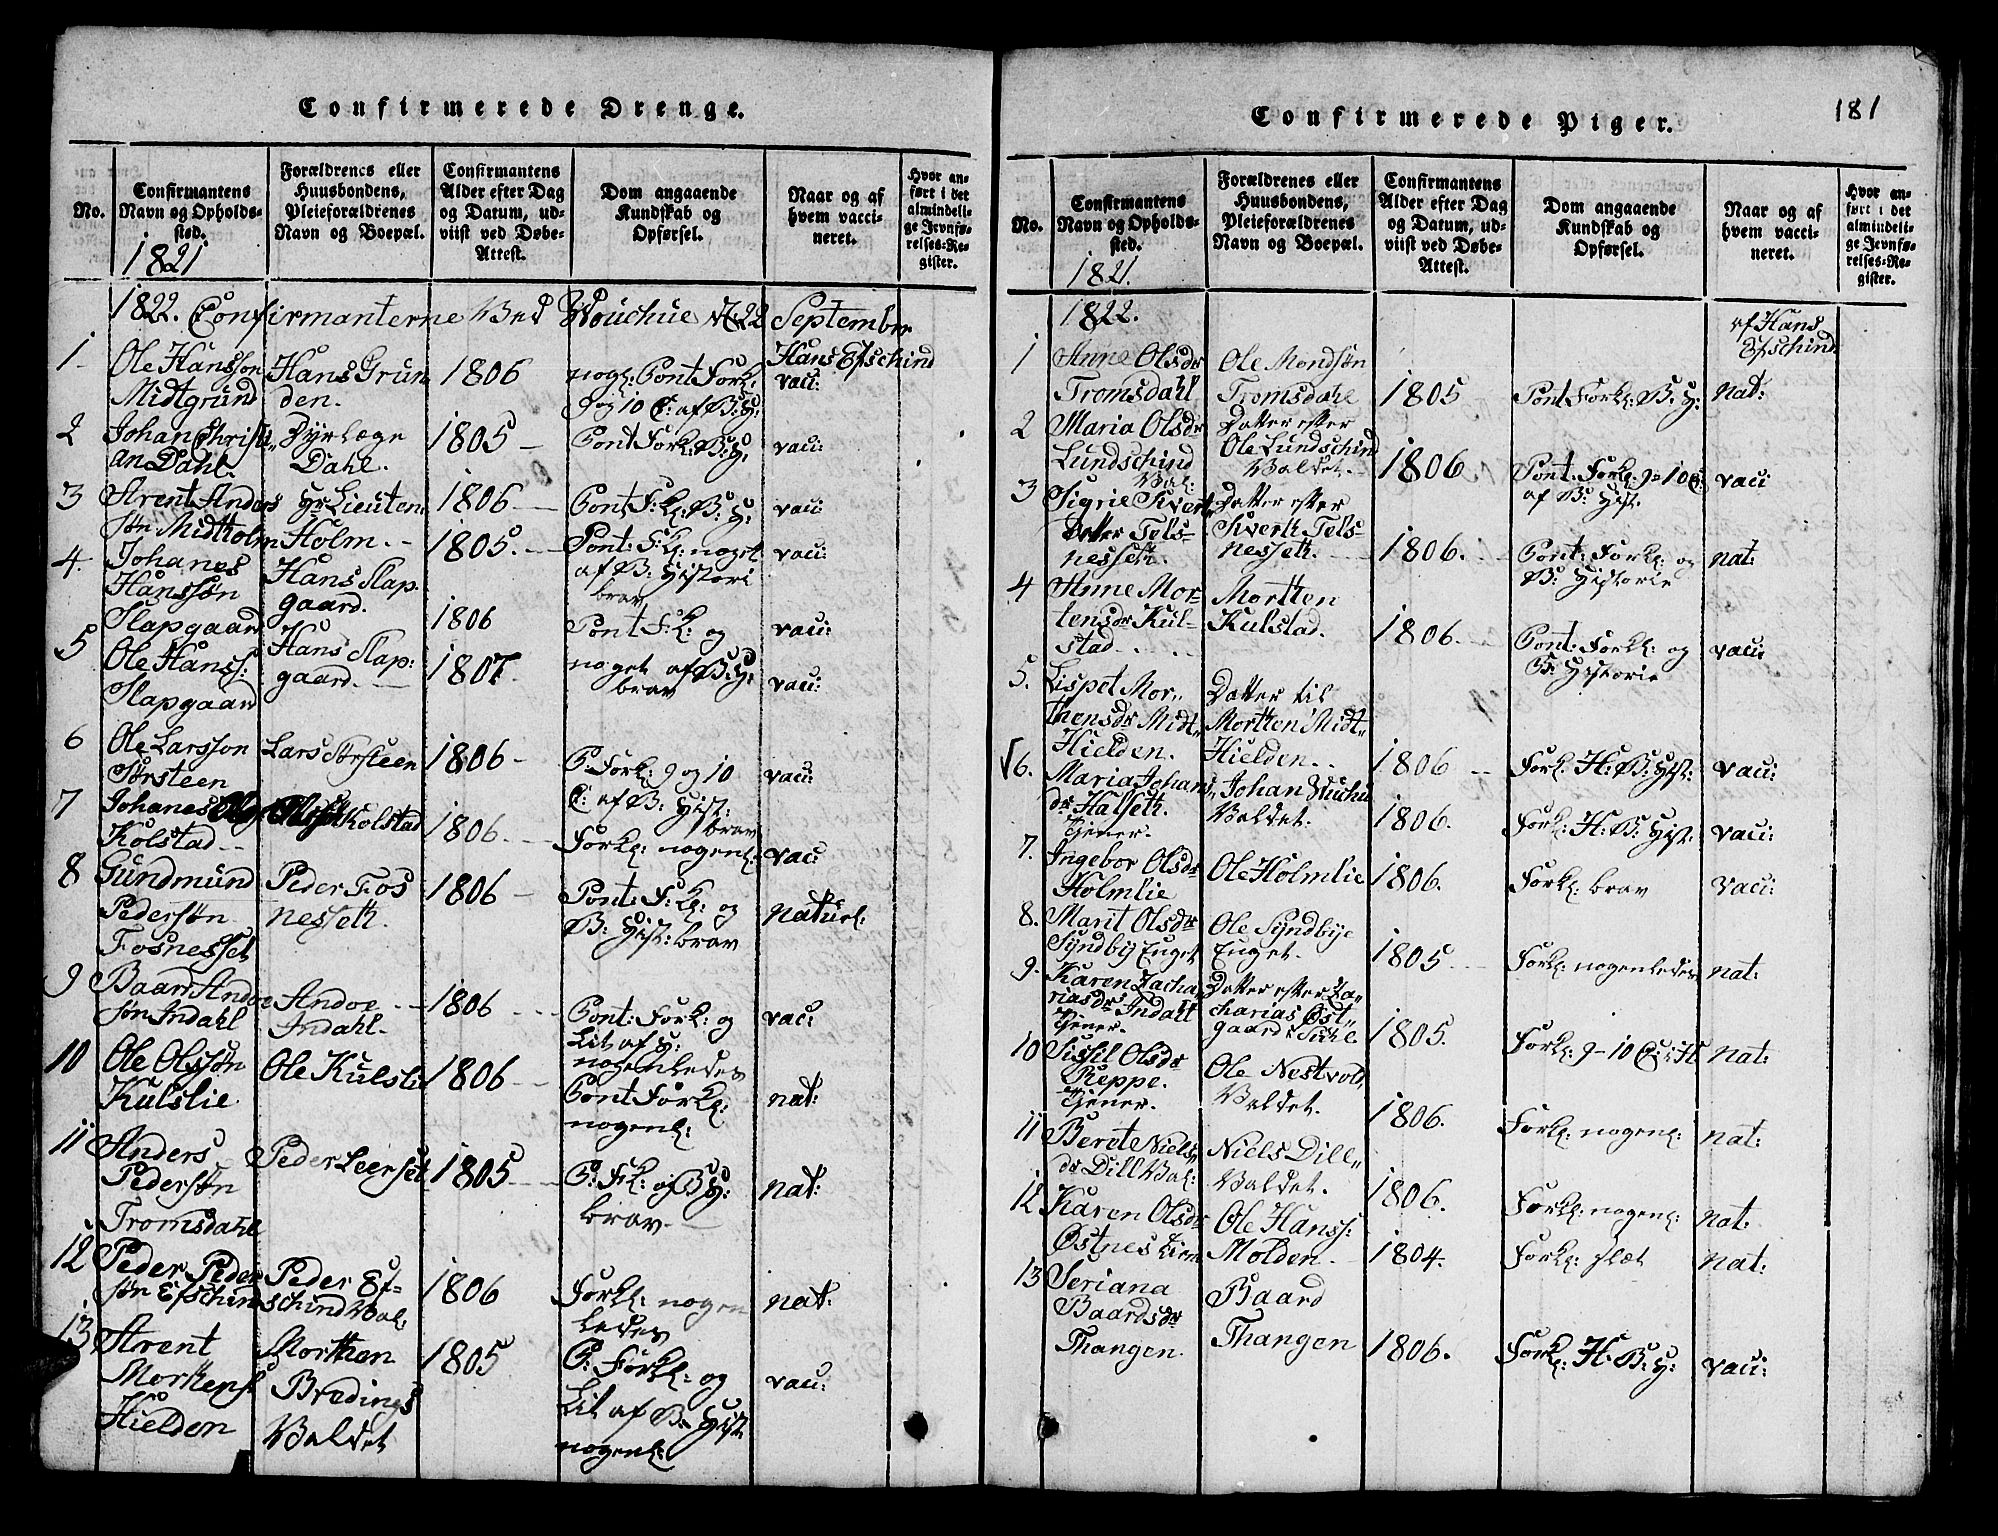 Confirmerede Drenge.
No.
Confirmantens Navn og Opholds-sted.
Forældrenes eller Huusbondens, Pleieforældrenes Navn og Boepæl.
Confirmantens Alder efter Dag og Datum, ud-viist ved Døbe-Attest.
Dom angaaende Kundskab og Opførsel.
Naar og af hvem vacci-neret.
Hvor an-ført i det almindeli-ge Jevnfø-relses-Re-gister.
1821
1822. Confirmanterne Ved Wouchue d: 22 September
Hans Efschind
1 Ole Hansson Midtgrund
Hans Grunden.
1806
nogl: Pont Fork: og 10 C: af B: H:
vaci:
2 Johan Christian Dahl.
Dyrlæge Dahl.
1805 -
Pont Fork: B: H:
vaci:
3 Arent Andersøn Midtholm
Hr Lieuten: Holm. -
1806 -
Pont: F: K: B: H:
vaci:
4. Johanes Hanssøn Slapgaard
Hans Slapgaard.
1805. -
Pont: F: K: noget af B: Histori brav
vac:
5 Ole Hanss: Slapgaard
Hans Slapgaard. -
1806
1807.
Pont F: K: og noget af B: H: brav
vaci:
vaci:
6 Ole Larsson Sørsteen
Lars Sørsteen
1806 -
P: Fork: 9 og 10 C: af B: Hist: brav
vaci:
7 Johanes Kolstad -
Kolstad
1806. -
Forkl: nogenl:
vac:
8 Gundmund Pedersøn Fosnesset
Peder Fosnesseth.
1806 -
Pont: F: K: og B: Hist: brav
naturl:
9 Baard Andoesøn Indahl
Andoe - Indahl.
1806 -
Pont: Fork: og Lit af H: nogenledes
vac:
10 Ole Olssøn Kulslie.
Ole Kulslie
1806 -
Pont Forkl: nogenl:
nat:
11 Anders Pedersøn Tromsdahl
Peder Leerset
1805 -
P: F: K: og B: H: brav. -
nat:
12 Peder Pedersøn Efschind
Peder Efschind Val:
1806
Forkl: nogenledes
nat:
13 Arent Mortens: Hielden
Morthen Bredings Valdet
1805
P: Forkl: og Lit af B: Hist nogenl:
vaci:
Confirmerede Piger.
181
No.
Confirmantens Navn og Opholds-sted.
Forældrenes eller Huusbondens, Pleieforældrenes Navn og Boepæl.
Confirmantens Alder efter Dag og Datum, ud-viist ved Døbe-Attest.
Dom angaaende Kundskab og Opførsel.
Naar og af hvem vacci-neret.
Hvor an-ført i det almindeli-ge Jevnfø-relses-Re-gister.
1821.
1822.
af Hans Efschind
1 Anne Olsdr Tromsdahl
Ole Mondsøn Tromsdahl
1805
Pont Forkl: B: H:
nat:
2 Maria Olsdr Lundschind Val:
Datter efter Ole Lundschind Valdet.
1806
Pont: Forkl: 9-10 C: af B: Hist.
vaci
3 Sigrie Sivert Datter Telsnesseth.
Datter efter Siverth Telsnesseth. -
1806. -
Pont: Forkl: og B: Historie
nat:
4 Anne Mortensdr Kulstad. - -
Mortten Kulstad.
1806. -
Pont: Forkl: og B: Historie
vaci:
5. Lispet Morthensdr Midt Hielden.
Datter til Morthen Midt Hielden. -
1806 -
Forkl: H: B: Hist:
vaci:
6. Maria Johansdr Halseth. Tjener.
Johan Wuchu Valdet.
1806.
Forkl: H: B: Hist:
vaci:
7. Ingebor Olsdr Holmlie
Ole Holmlie
1806.
Forkl: brav
vaci:
8. Marit Olsdr Syndbij Enget
Ole Syndbye Enget.
1805 -
Forkl: nogenledes
nat:
9. Karen Zachariasdr Indahl Tjener.
Datter efter Zacharias Østgaard i Suhl
1805.
Forkl: 9-10 C: i H
nat:
10 Sissil Olsdr Reppe. Tjener.
Ole Nestvold Valdet.
1806.
Forkl: nogenl:
nat:
11 Berote Nielsdr Dill Val:
Niels Dill Valdet.
1806.
Forkl: nogenl:
nat:
12 Karen Olsdr Østnes
Ole Hanss: Molden. -
1804.
Forkl: slæt
nat:
13 Seriana Baardsdr Thangen.
Baard Thangen
1806.
Forkl: H: B: H:
vaci: